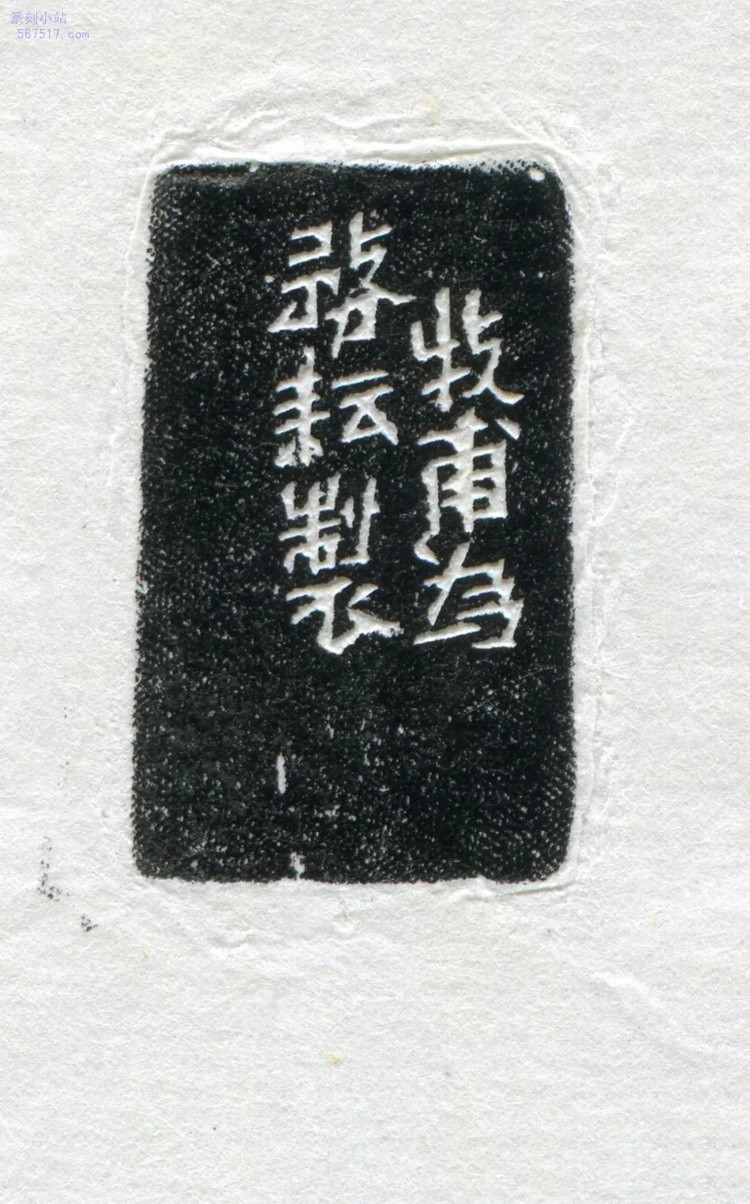 篆刻小站
567517.com
牧甫為
務耘製